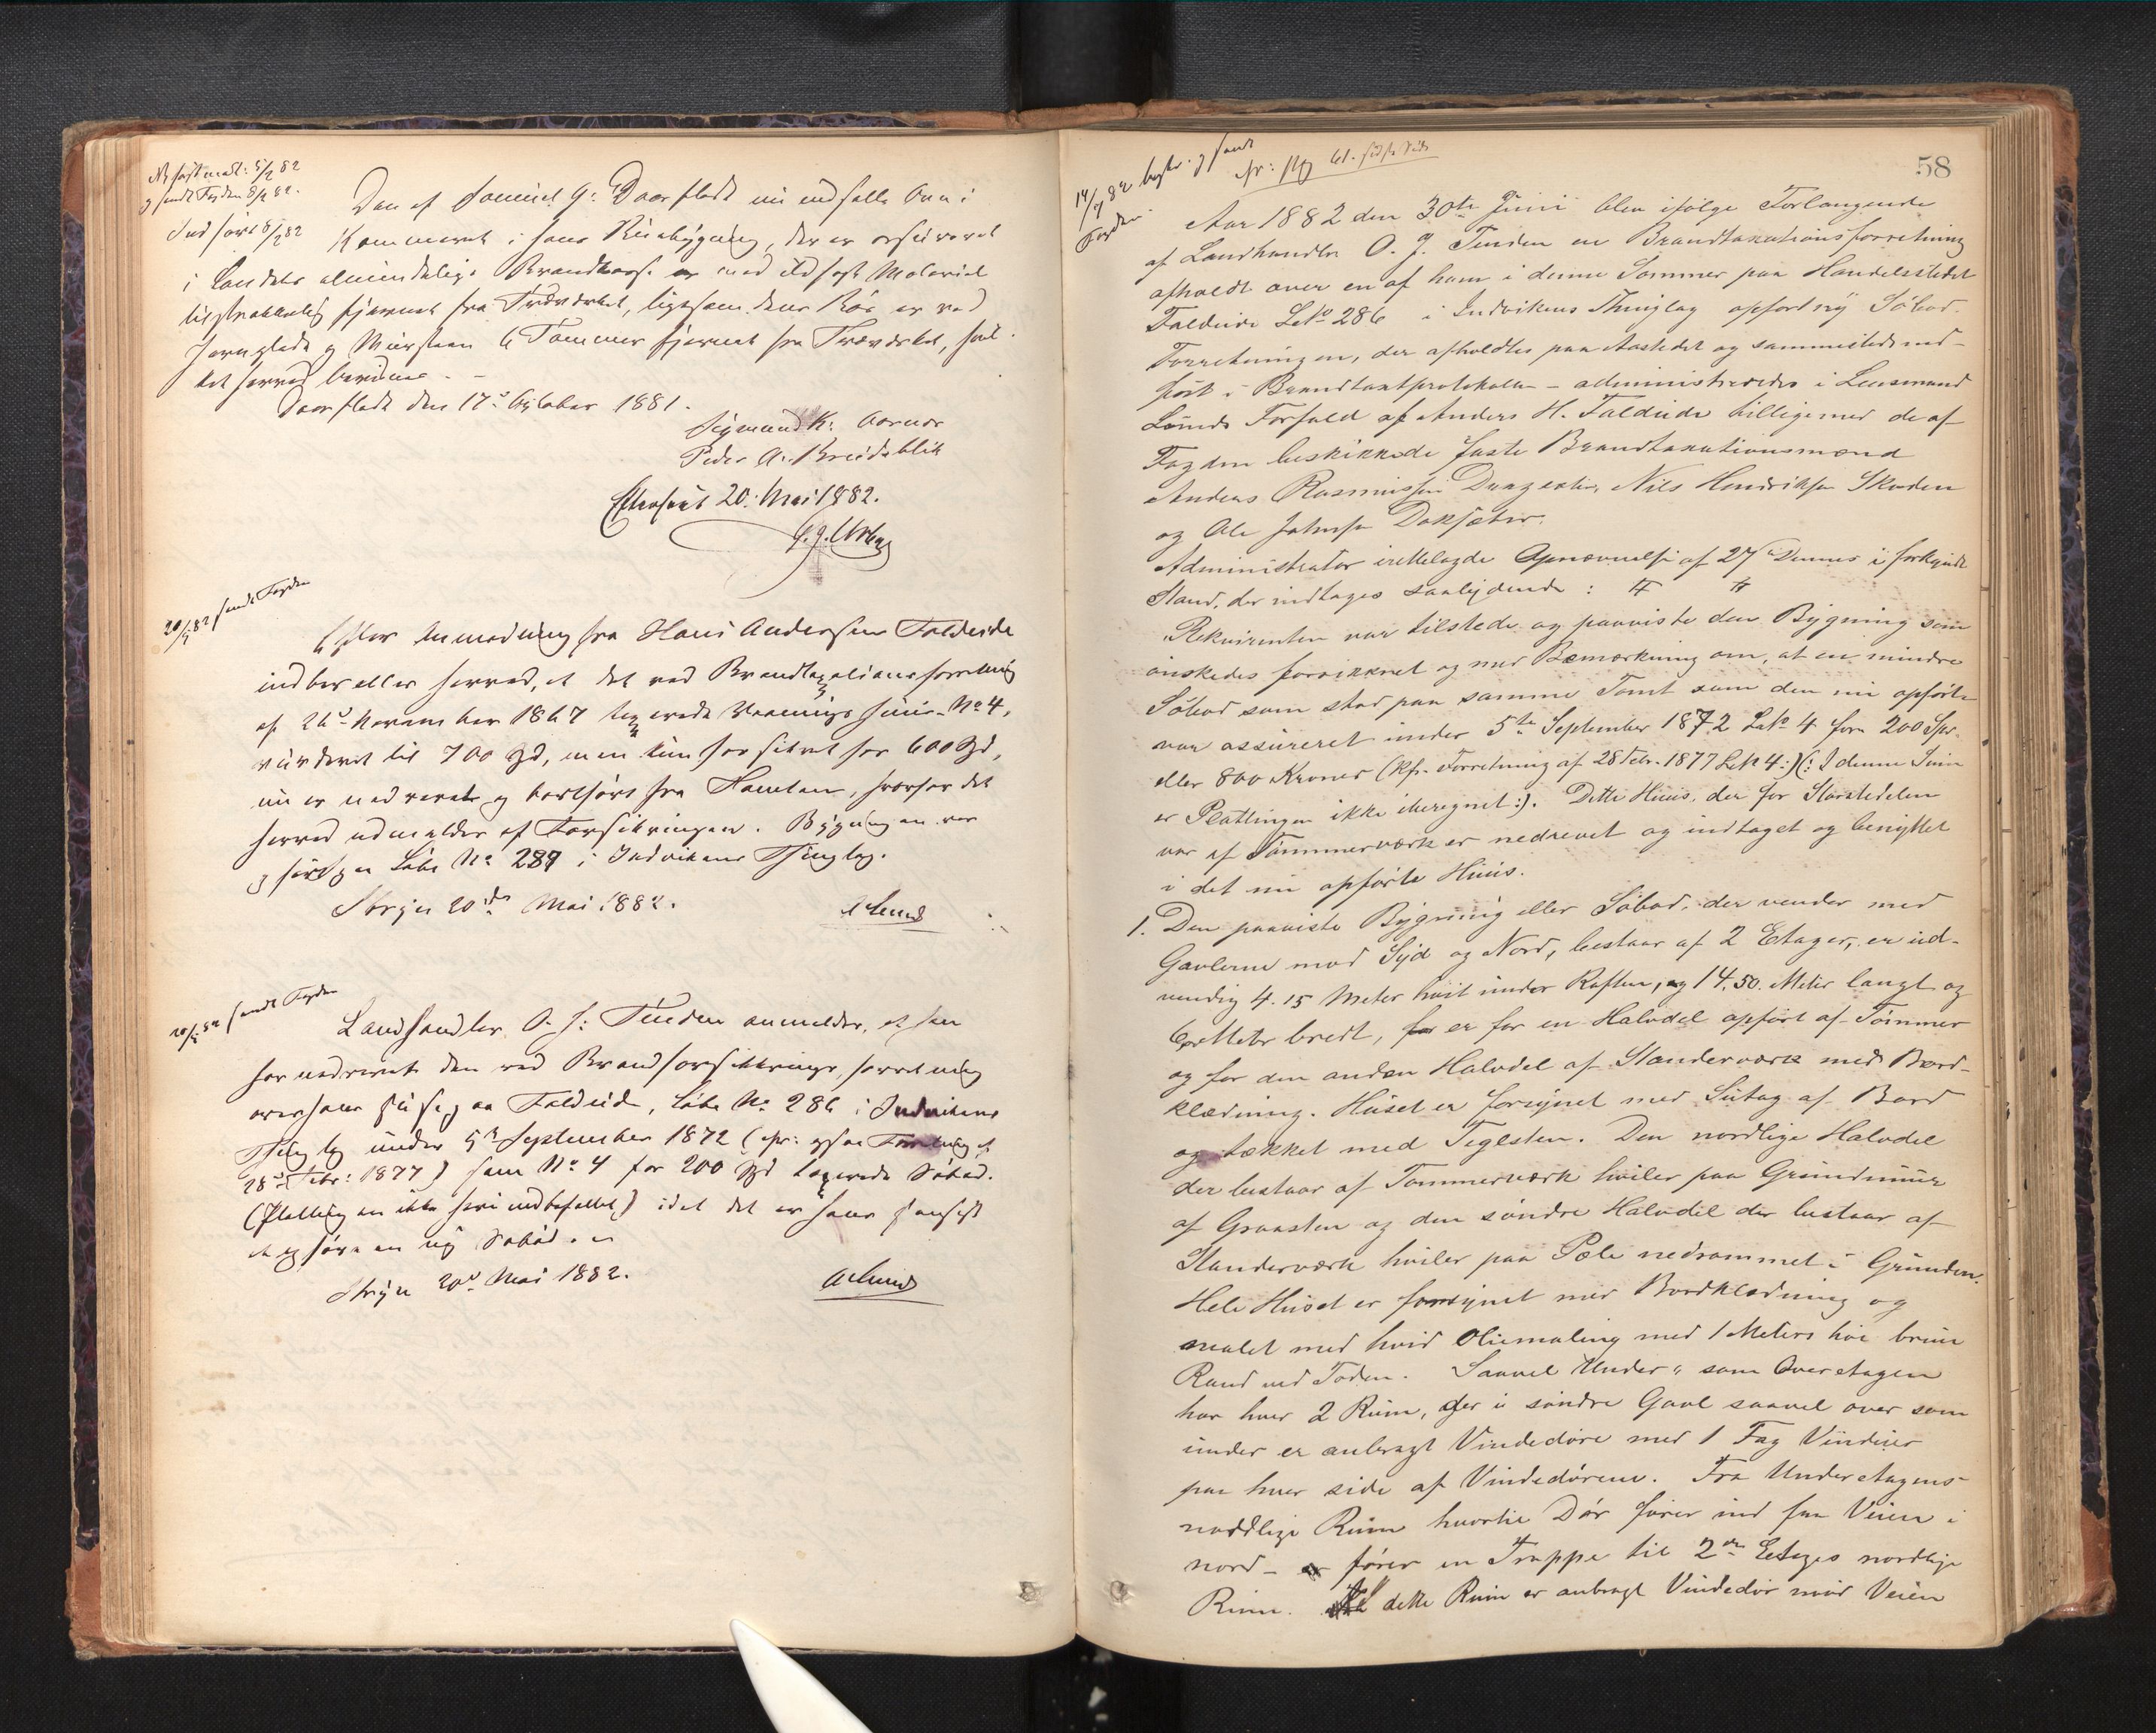 sendt Fogden 8/2 82.
Indført 8/2 82
Den af Samuel G: Daarfladt nu indsatte Ovn i
Kammeret i hans Stuebygning, der er assureret
i Landets almindelige Brandkasse er med ildfast Materiel
tilstrækkelig fjernet fra Træværket, ligesom dens Rör er ved
Jernplade og Mursteen 6 Tommer fjernet fra Træværket, hvil-
ket herved bevidnes. -
Daarfladt den 17de October 1881.
Sigmund K:
Peder A: Breidablik
Efterseet 20. Mai 1882.
20/5 82 sendt Fogden
Efter Anmodning fra Hans Andersen Faldeide
indberettes herved, at det ved Brandtaxationsforretning
af 26de November 1867 taxerede Vaaningshuus No 4,
vurderet til 700 Spd, men kun forsikret for 600 Spd,
nu er nedrevet og bortført fra Tomten, hvorfor det
herved udmeldes af Forsikringen. Bygningen var
opført paa Løbe No 287 i Indvikens Thinglag.
Stryn 20de Mai 1882.
20/5 82 sendt Fogden
Landhandler O. J: Tenden anmelder, at han
har nedrevet den ved Brandforsikrings forretning
over hans Huse paa Faldeide, Løbe No 286 i Indvikens
Thinglag under 5te September 1872 (cfr: ogsaa Forretning af
28de Febr: 1877) som No 4 for 200 Spd taxerede Søbod.
(Platting en ikke heri indbefattet) idet det er hans Hensigt
at opføre en ny Søbod. -
Stryn 20de Mai 1882.
58
14/7 82 bogf. og sendt
Fogden.
Aar 1882 den 30te Juni blev ifölge Forlangende
af Landhandler O. J. Tenden en Brandtaxationsforretning
afholdt over en af ham i denne Sommer paa Handelsstedet
Faldeide Löbeo 286 i Indvikens Thinglag opfört ny Söbod.
Forretningen, der afholdtes paa Aastedet og sammesteds ind-
fört i Brandtaxtprotokollen - administreredes i Lensmand
Lunds Forfald af Anders H. Faldeide tilligemed de af
Fogden beskikkede faste Brandtaxationsmænd
Anders Rasmussen Nils Hendriksen Skaden
og Ole Johnsen
Administrator irettelagde Opnævnelse af 27de Dennes i forkyndt
Stand, der indtages saalydende: # #
Rekvirenten var tilstede og paaviste den Bygning som
önskedes forsikkret og med Bemærkning om, at en mindre
Söbod som stod paa samme Tomt som den nu opförte
var assureret under 5te September 1872 Leto 4 for 200 Spr.
eller 800 Kroner (kfr. Forretning af 28 Febr. 1877 Leto 4:)(: I denne Sum
er Plattingen ikke iberegnet:). Dette Huus, der for Störstedelen
var af Tömmerværk er nedrevet og indtaget og benyttet
i det nu opförte Huus.
1. Den paaviste Bygning eller Söbod, der vender med
Gavlerne mod Syd og Nord, bestaar af 2 Etager, er ud-
vendig 4.15 Meter höit under Raften, og 14.50. Meter langt og
Meter bredt, er for en Halvdel opfört af Tömmer
og for den anden Halvdel af Standerværk med Bord-
klædning. Huset er forsynet med Sutag af Bord
og tækket med Teglsten. Den nordlige Halvdel
der bestaar af Tömmerværk hviler paa Grundmuur
af Graasten og den söndre Halvdel der bestaar af
Standerværk hviler paa Pæle nedrammet i Grunden.
Hele Huset er forsynet med Bordklædning og
malet med hvid Oliemaling med 1 Meters höi brun
Rand ved Foden. Saavel Under" som Overetagen
har hver 2 Rum, der i söndre Gavl saavel over som
under er anbragt Vindedöre med 1 Fag Vinduer
paa hver side af Vindedörene. Fra Underetagens
nordlige Rum hvortil Dör förer ind fra Veien i
nord - förer en Trappe til 2den Etages nordlige
Rum. Til dette Rum er anbragt Vindedör mod Veien